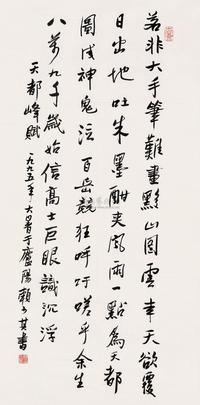 若非大手筆難畫黟山图雲天欲覆
日出地吐朱墨酣夾風雨一點為天都
圖成神鬼泣百岳競狂呼吁嗟乎余生
八萬九千歲始信高士巨眼識沉浮
天都峰賦 一九九五年大暑于廬陽賴少其書